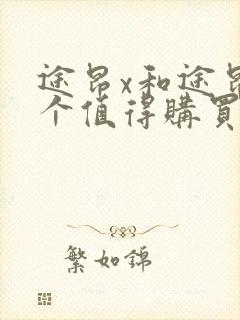 途昂x和途昂
个值得購買
繁如錦